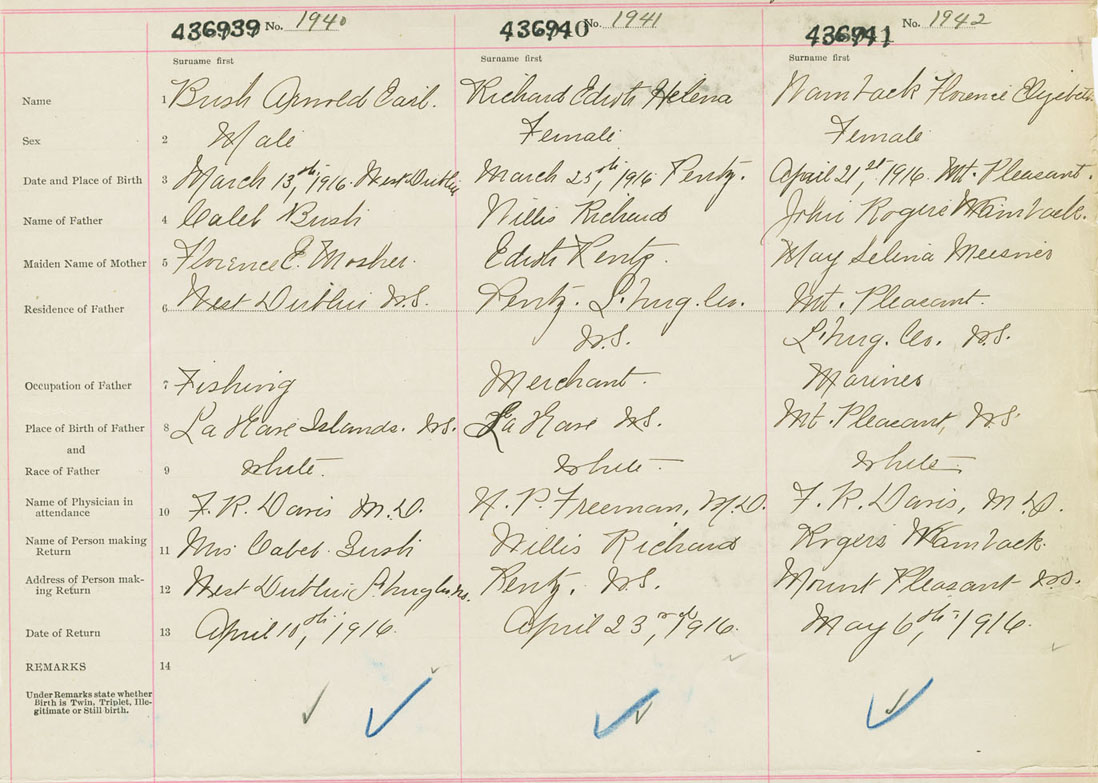 436939 No. 1940 436940 No. 1941 436941 No. 1942
Surname first Surname first Surname first
Name 1 Bush Arnold Earl. Richard Edith Helena Wamback Florence Elizabeth
Sex 2 Male Female Female
Date and Place of Birth 3 March 13th, 1916 West Dublin March 25th, 1916 Pentz. April 21st, 1916. Mt. Pleasant.
Name of Father 4 Caleb Bush Willis Richard John Rogers Wamback.
Maiden Name of Mother 5 Florence E. Mosher. Edith Pentz. May Selina Meisner
Residence of Father 6 West Dublin N.S. Pentz. L'nug. Co. Mt. Pleasant.
N.S. L'nug. Co. N.S.
Occupation of Father 7 Fishing Merchant. Mariner
Place of Birth of Father 8 La Have Islands. N.S. La Have N.S. Mt. Pleasant, N.S.
and
Race of Father 9 White. White. White
Name of Physician in
attendance 10 F. R. Davis M.D. H. P. Freeman, M.D. F. R. Davis, M.D.
Name of Person making
Return 11 Mrs Caleb Bush Willis Richard Rogers Wamback.
Address of Person mak-
ing Return 12 West Dublin Pentz. N.S. Mount Pleasant N.S.
Date of Return 13 April 10th, 1916. April 23rd, 1916. May 6th, 1916.
REMARKS 14
Under Remarks state whether
Birth is Twin, Triplet, Ille-
gitimate or Still birth.